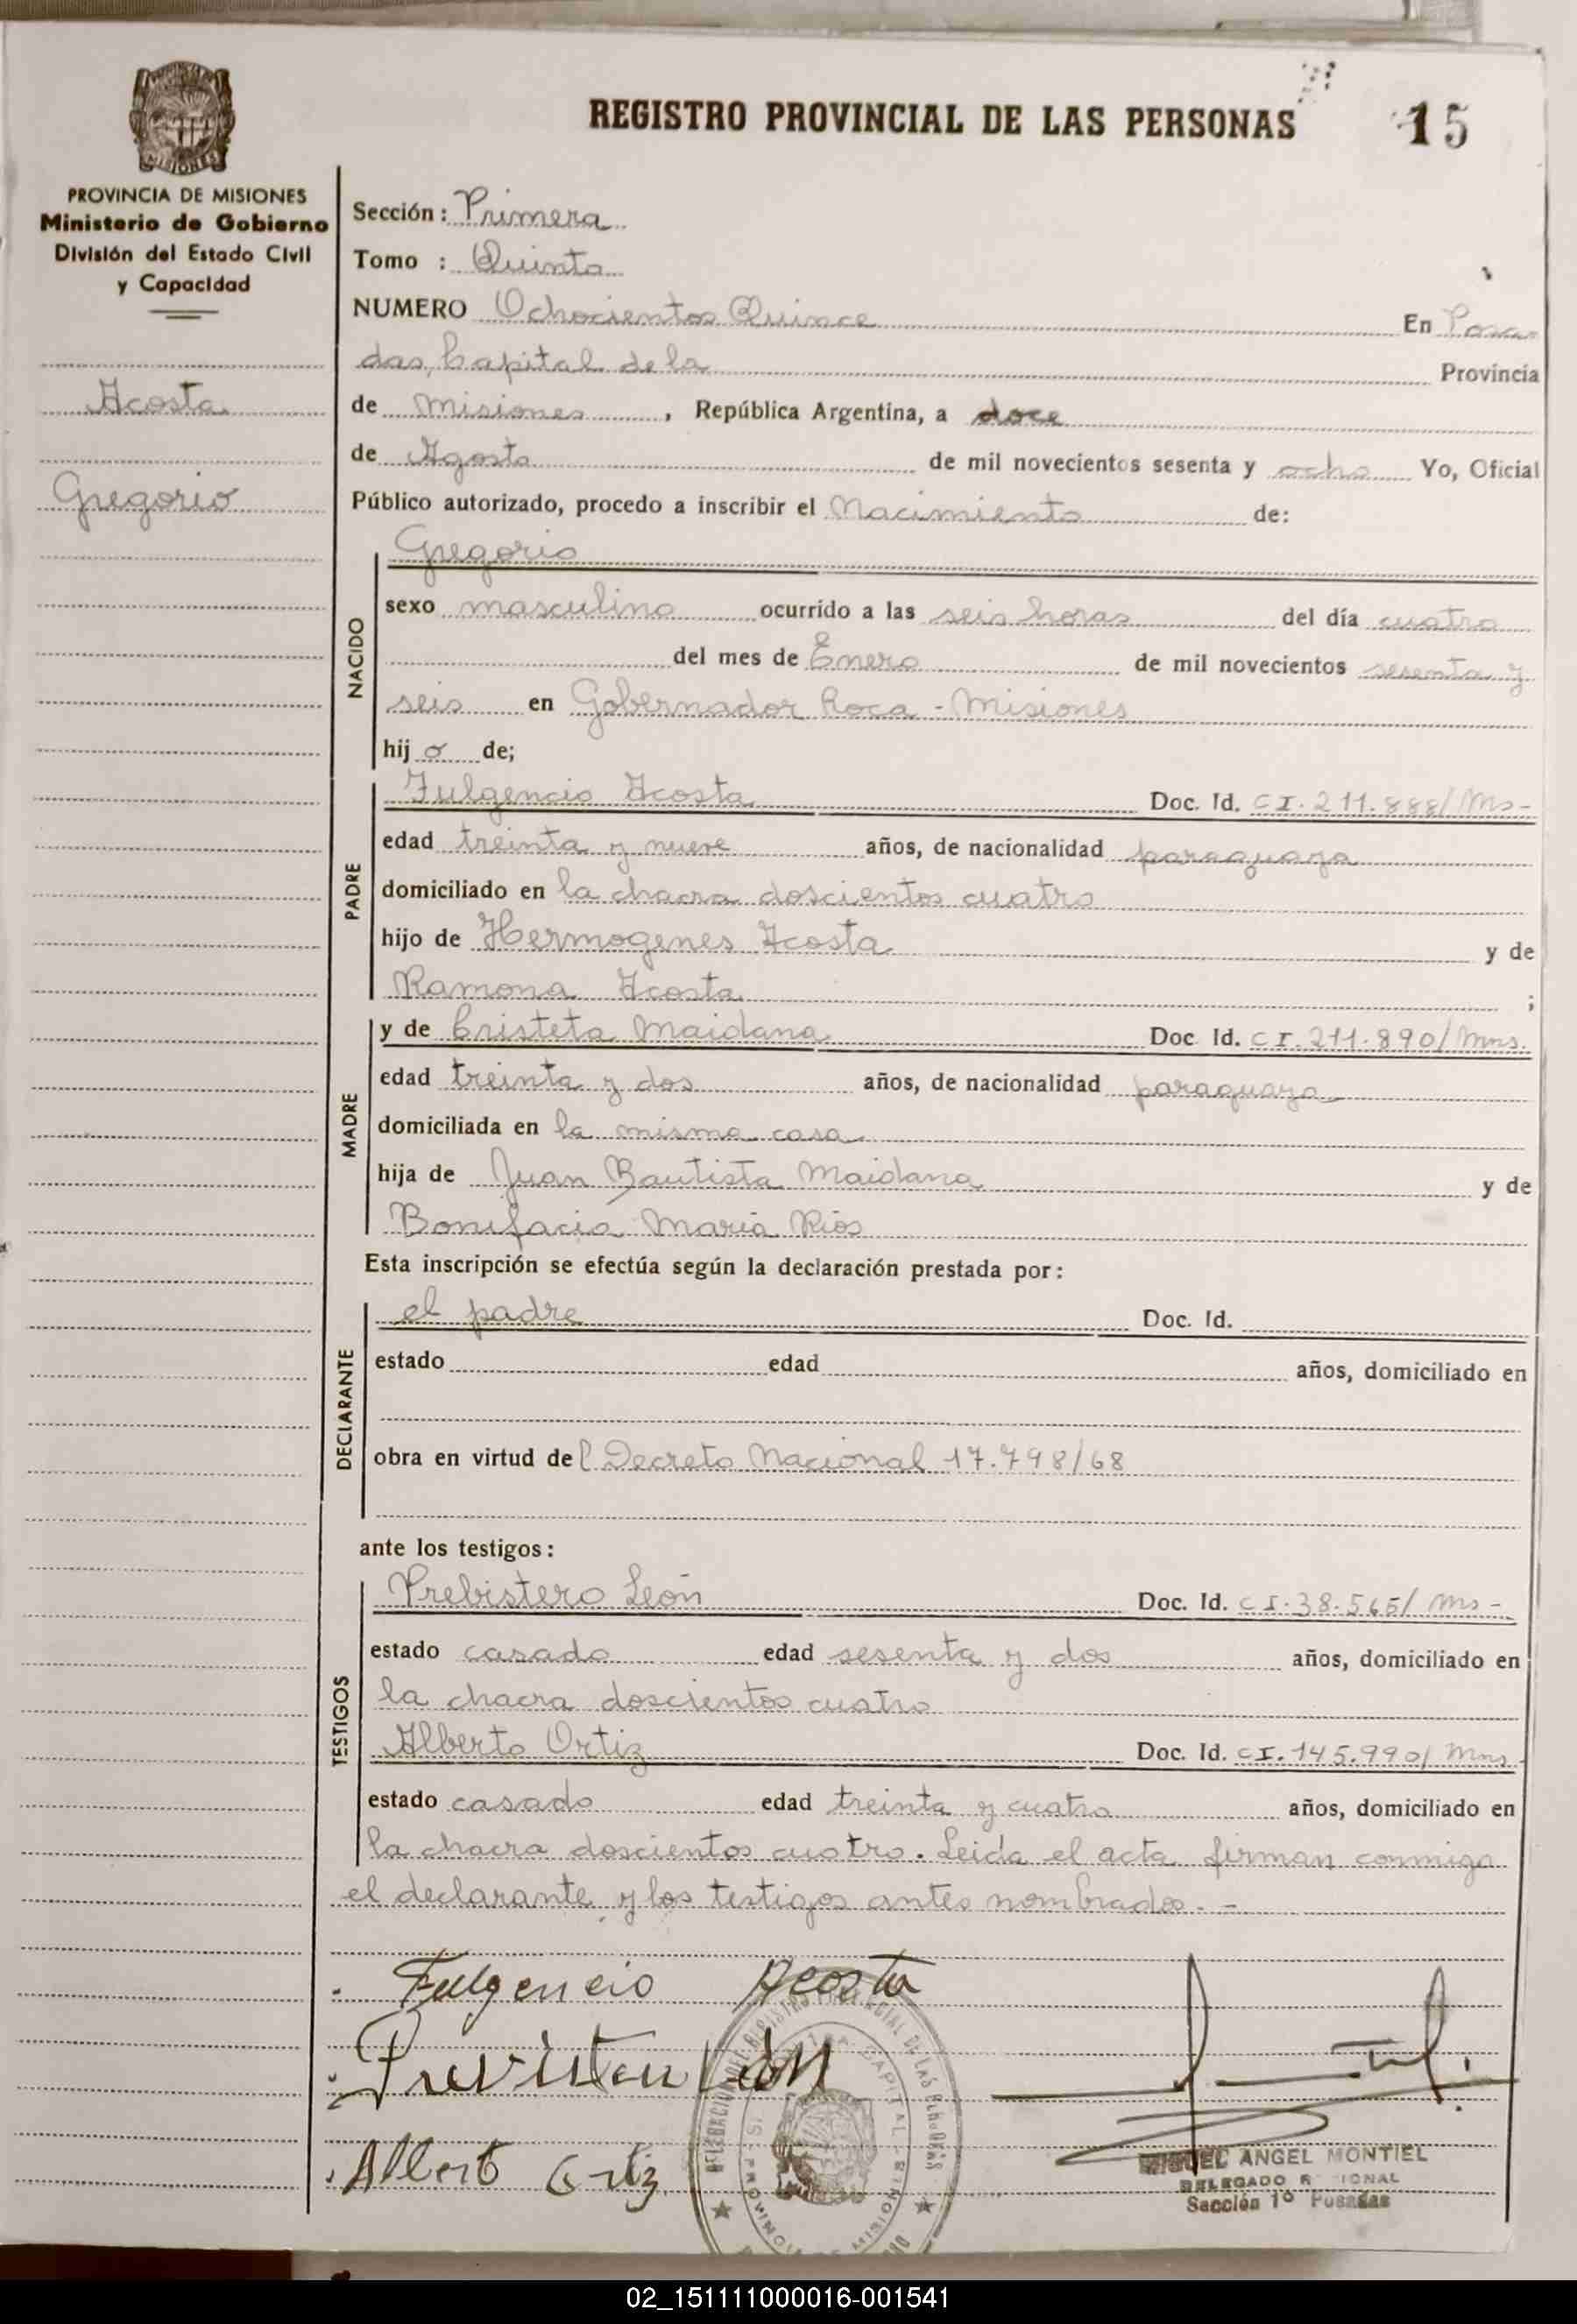 MISIONES
PROVINCIA DE MISIONES
Ministerio de Gobierno
División del Estado Civil
y Capacidad
Acosta
Gregorio
REGISTRO PROVINCIAL DE LAS PERSONAS 15
Sección: Primera
Tomo : Quinto
NUMERO Ochocientos Quince En Posa
das, Capital de la Provincia
de Misiones, República Argentina, a doce
de Agosto de mil novecientos sesenta y ocho Yo, Oficial
Público autorizado, procedo a inscribir el Nacimiento de:
NACIDO
Gregorio
sexo masculino ocurrido a las seis horas del día cuatro
del mes de Enero de mil novecientos sesenta y
seis en Gobernador Roca - Misiones
hijo de;
PADRE
Fulgencio Acosta Doc. Id. CI. 211.888/Ms-
edad treinta y nueve años, de nacionalidad paraguaya
domiciliado en la chacra doscientos cuatro
hijo de Hermogenes Acosta y de
Ramona Acosta ;
MADRE
y de Cristeta Maidana Doc Id. CI. 211.890/Mns.
edad treinta y dos años, de nacionalidad paraguaya
domiciliada en la misma casa
hija de Juan Bautista Maidana y de
Bonifacia Maria Rios
Esta inscripción se efectúa según la declaración prestada por:
DECLARANTE
el padre Doc. Id.
estado edad años, domiciliado en
obra en virtud del Decreto Nacional 17.798/68
ante los testigos:
TESTIGOS
Prebistero León Doc. Id. CI. 38.565/Ms-
estado casado edad sesenta y dos años, domiciliado en
la chacra doscientos cuatro
Alberto Ortiz Doc. Id. CI. 145.990/Mns.
estado casado edad treinta y cuatro años, domiciliado en
la chacra doscientos cuatro. Leida el acta firman conmigo
el declarante y los testigos antes nombrados. -
Fulgencio Acosta
León
Albert Ortiz
REGISTRO PROVINCIAL DE LAS PERSONAS
CAPITAL
PROVINCIA DE MISIONES
MIGUEL ANGEL MONTIEL
DELEGADO
Sección 1º Posadas
02_151111000016-001541